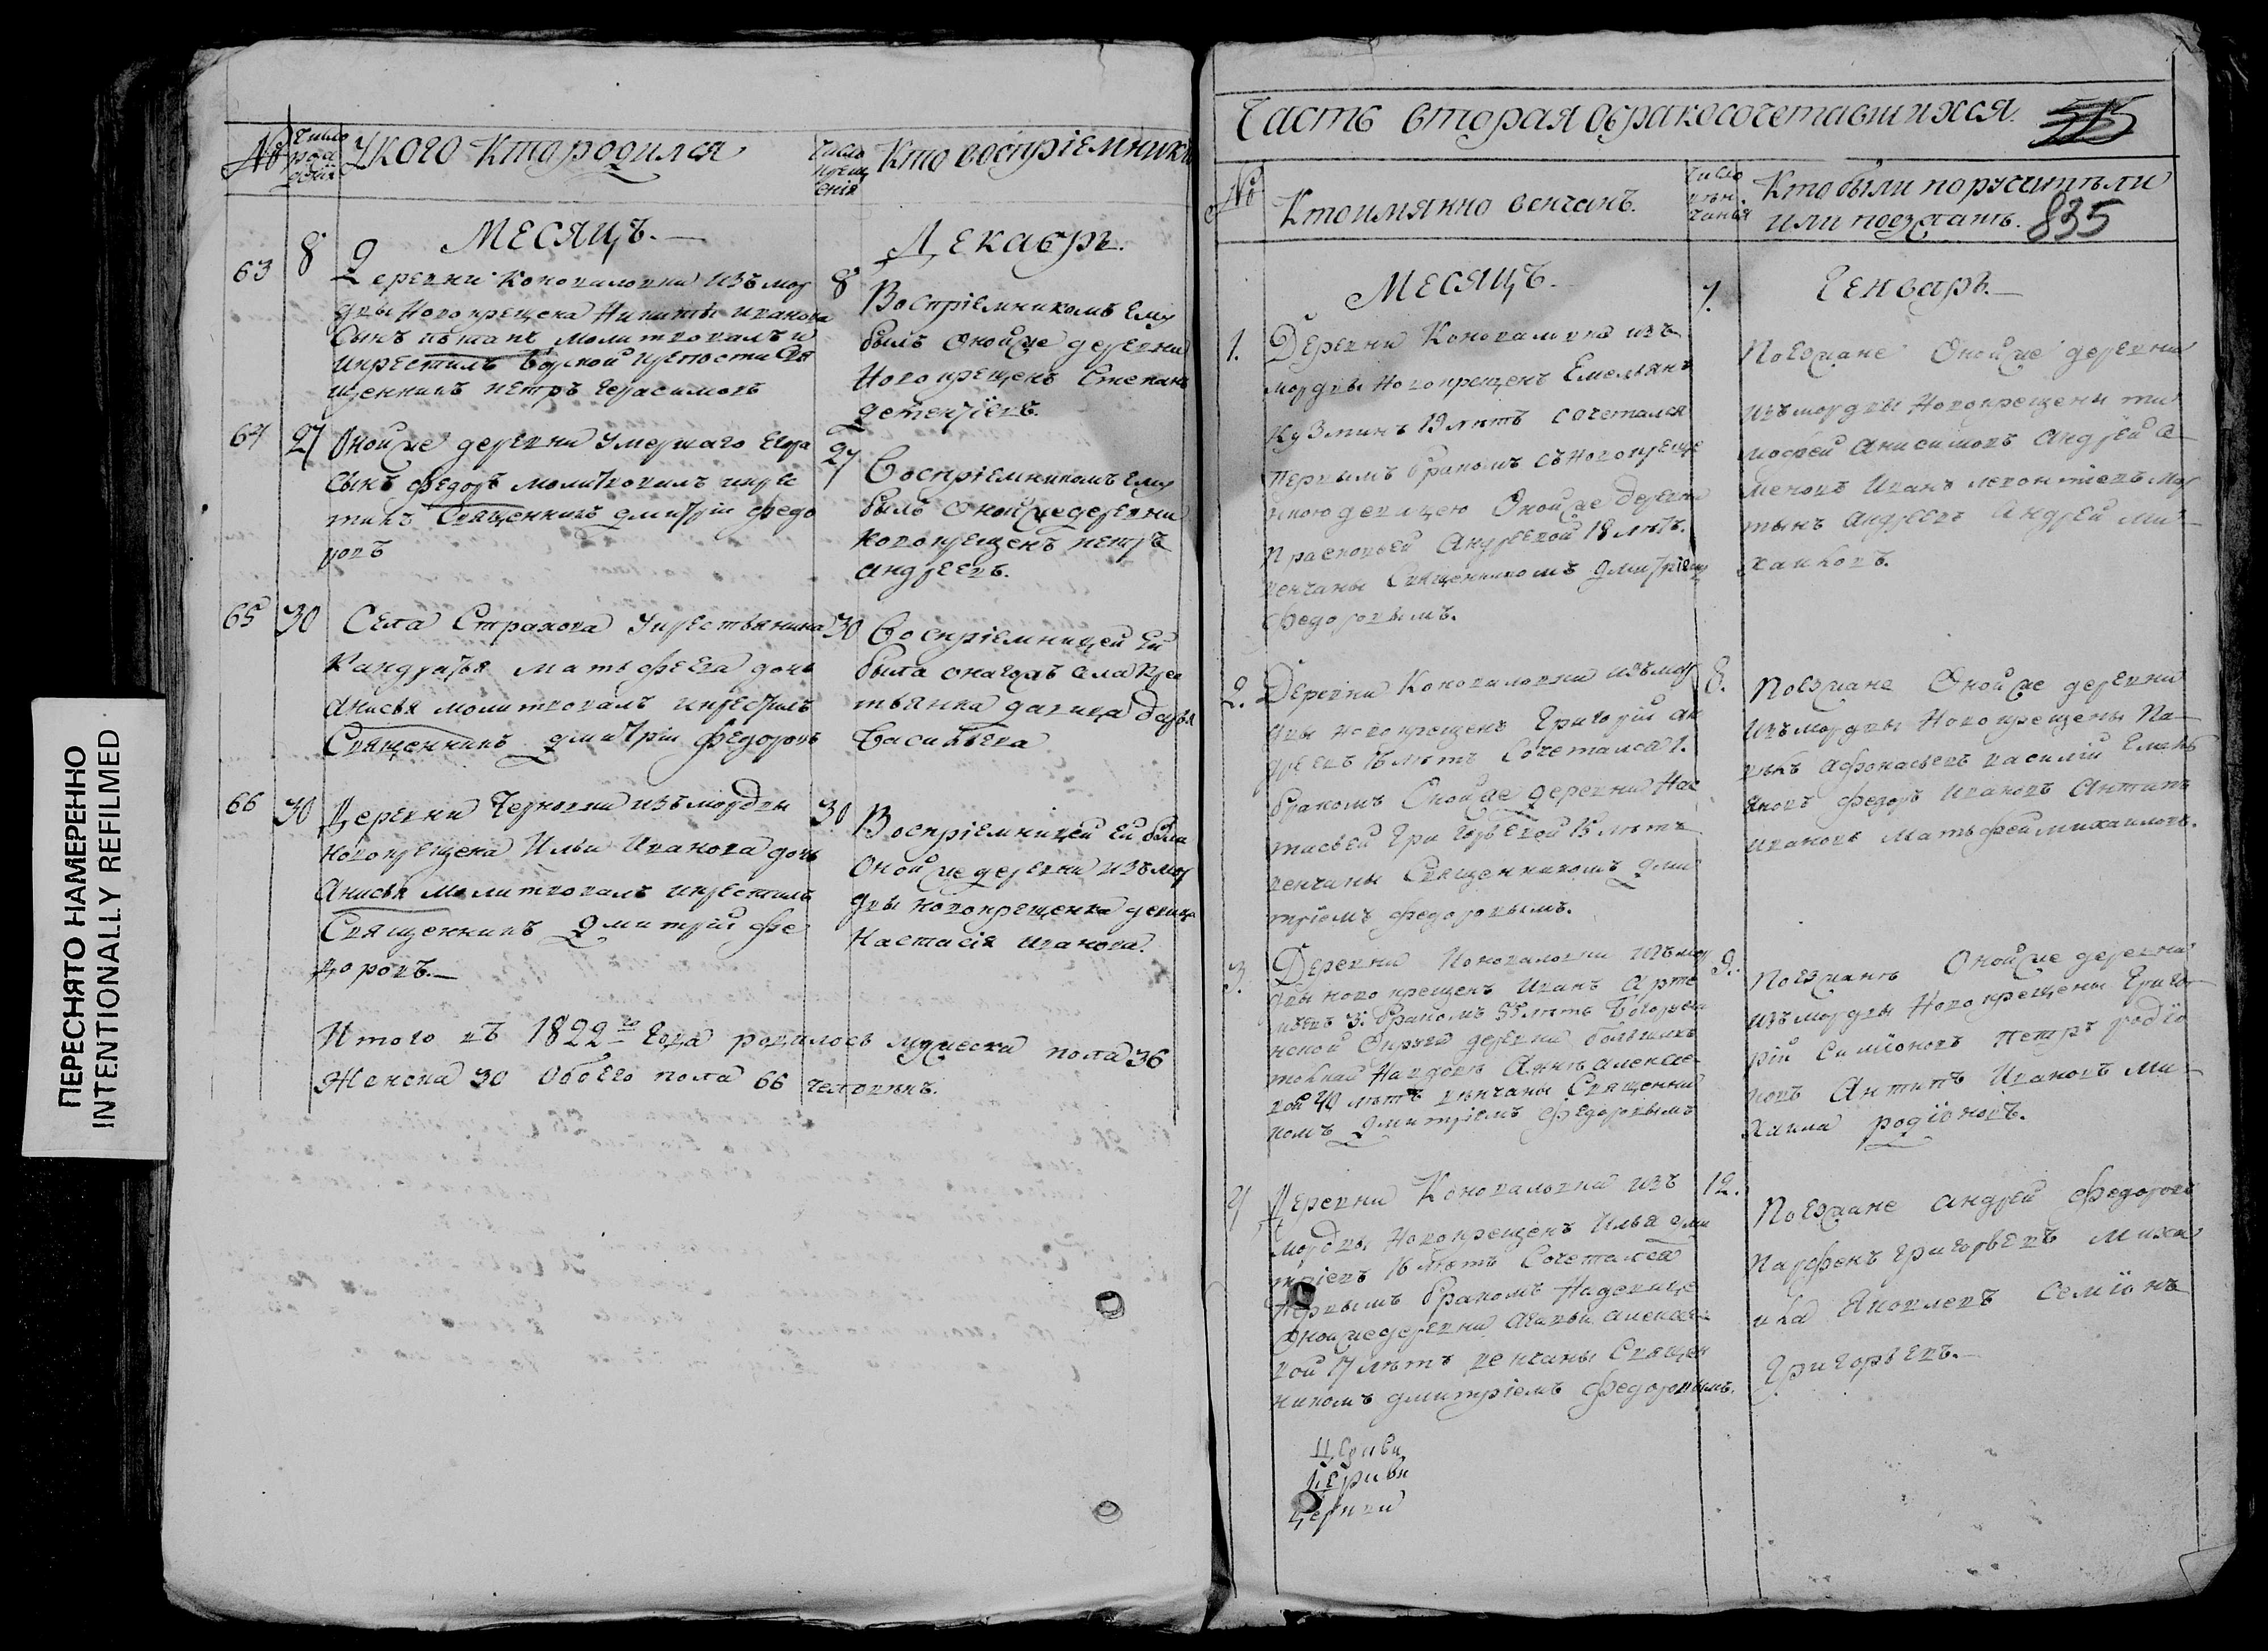 ПЕРЕСНЯТО НАМЕРЕННО
INTENTIONALLY REFILMED
№
Число рож дения
У кого кто родился
Число крещ ения
Кто воспріемники
Месяцъ.
Декабрь.
63
8
Деревни Коноваловки изъ мор
двы Новокрещена Никиты иванова
Сынъ молитвовалъ и
икрестилъ Борской крепости Свя
щенникъ петръ Герасимовъ
8
Воспріемникомъ Ему
былъ Оной же деревни
Новокрещенъ Степанъ
64
27
Оной же деревни умершаго Егора
Сынъ федоръ молитвовалъ икрес
тилъ Священникъ дмитрій федо
ровъ
27
Воспріемникомъ Ему
былъ Оной же деревни
новокрещенъ петръ
андреевъ.
65
30
Села Страхова укрестьянина
Кандратья матьфеева дочь
Анисья молитвовалъ икрестилъ
Священникъ дмитрій федоровъ
30
Воспріемницей Ей
была онагожъ села крес
тьянка давица дарья
Васильева
66
30
Деревни Черновки изъ мордвы
новокрещена Ильи Иванова дочь
Анисья молитвовалъ икрестилъ
Священникъ Дмитрій фе
доровъ.
30
Воспріемницей Ей была
Оной же деревни изъ мор
двы новокрещенка девица
Настасія иванова.
Итого въ 1822м Года родилось мужеска пола 36
Женска 30 Обоего пола 66 человекъ.
Часть вторая обракосочетавшихся.
835
№
Кто имянно венчанъ.
Число вѣн чанья
Кто были поручители
или поезжанъ.
Месяцъ.
Генварь.
1.
Деревни Коноваловки изъ
мордвы новокрещенъ Емельянъ
Кузминъ 19 лѣтъ сочетался
первымъ бракомъ съ новокреще
нною девицею Оной же деревни
Прасковьей Андреевой 18 лѣтъ.
венчаны Священникомъ дмитріемъ
федоровымъ.
7.
Поезжане Оной же деревни
изъ мордвы Новокрещены ти
мофей Анисимовъ андрей се
меновъ Иванъ леонтіевъ мар
тынъ андреевъ Андрей ми
хаиловъ.
2.
Деревни Коноваловки изъ мор
двы новокрещенъ Григорій ан
дреевъ 16 лѣтъ Сочетался 1.
бракомъ Оной же деревни Нас
тасьей Григорьевой 15 лѣтъ
венчаны Священникомъ дми
тріемъ федоровымъ.
8.
Поезжане Оной же деревни
изъ мордвы Новокрещены Па
афонасьевъ василій Емель
яновъ федоръ ивановъ Антипъ
ивановъ Матьфей михаиловъ.
3.
Деревни Коноваловки изъ мор
двы новокрещенъ Иванъ Арте
мьевъ 3. бракомъ 55 лѣтъ
деревни
Аннѣ алексее
вой 40 лѣтъ вѣнчаны Священни
комъ дмитріемъ федоровымъ
9.
Поезжанъ Оной же деревни
изъ мордвы Новокрещены Григо
рій симіоновъ петръ родіо
новъ Антипъ Ивановъ ми
хаила родіоновъ.
4
Деревни Коноваловки изъ
мордвы новокрещенъ Илья дми
тріевъ 16 лѣтъ Сочетался
первымъ бракомъ На девице
Оной же деревни алексее
вой 17 лѣтъ венчаны Священ
никомъ дмитріемъ федоровымъ.
12.
Поезжане андрей федоровъ
Парфенъ григорьевъ миха
ила Яковлевъ семіонъ
Григорьевъ.